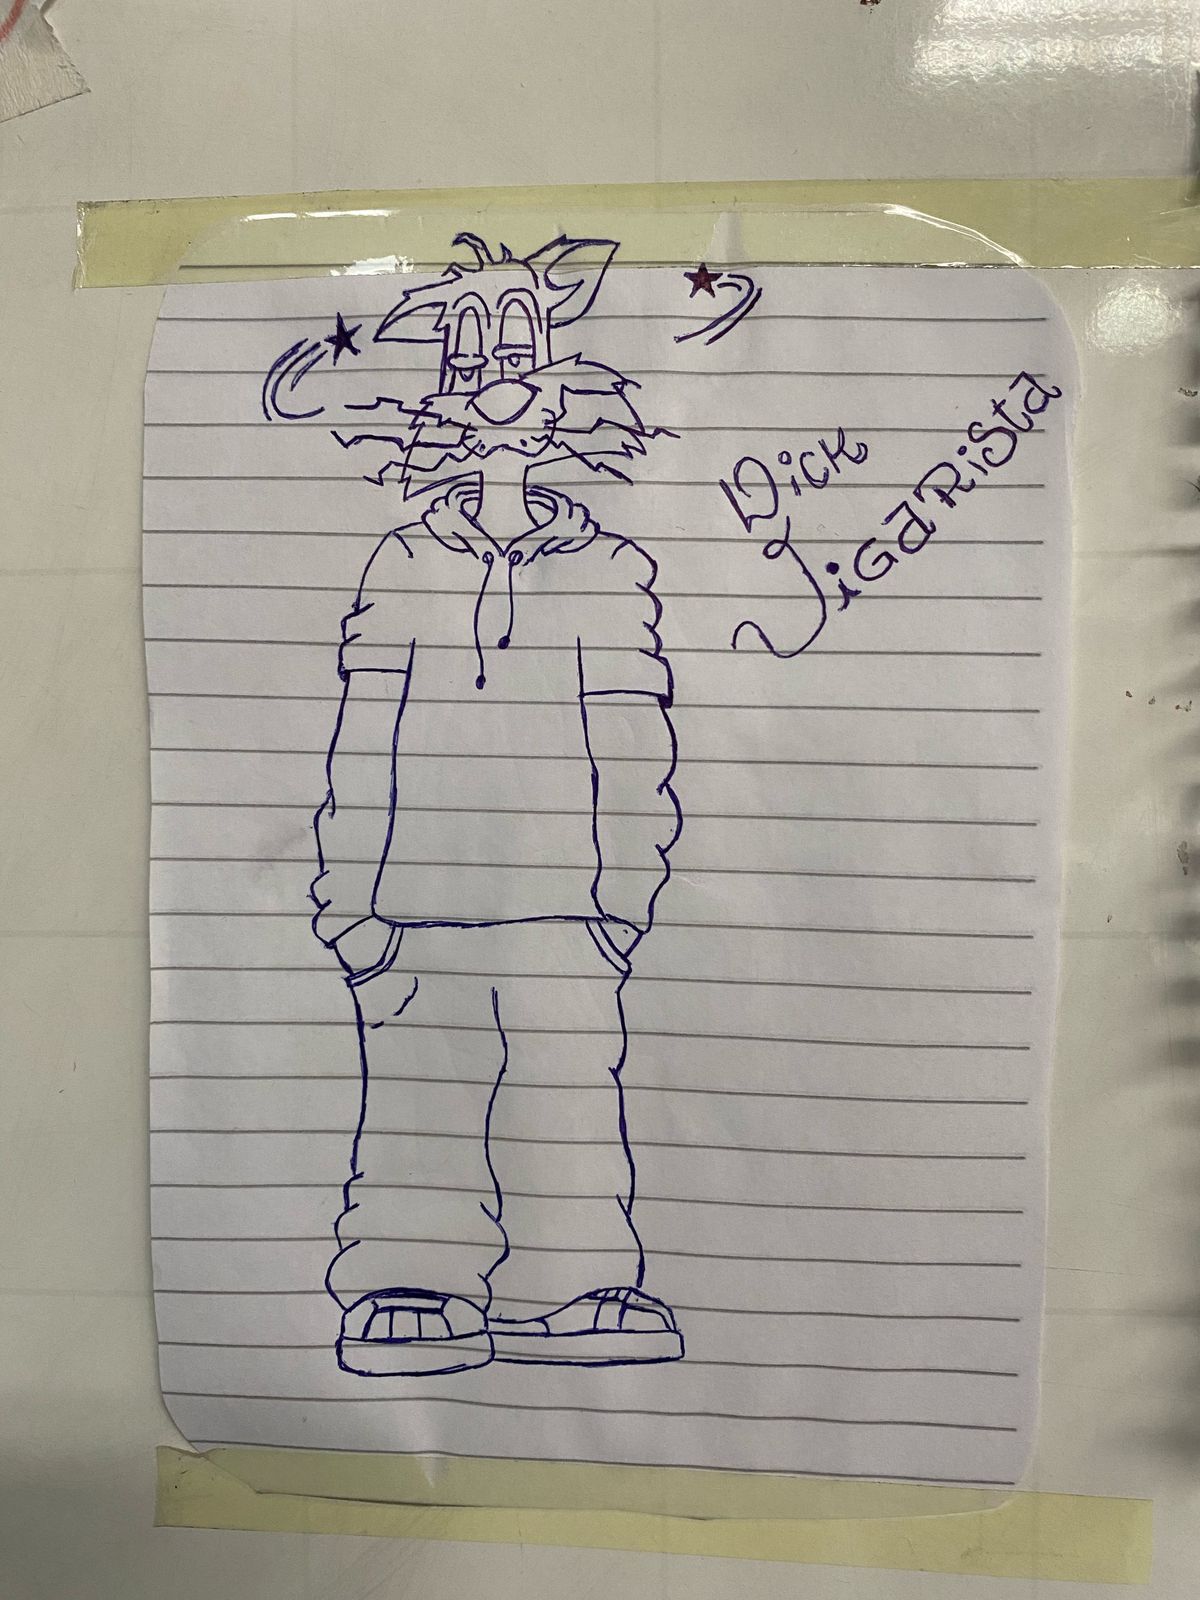 Dick
ViGaRiSta